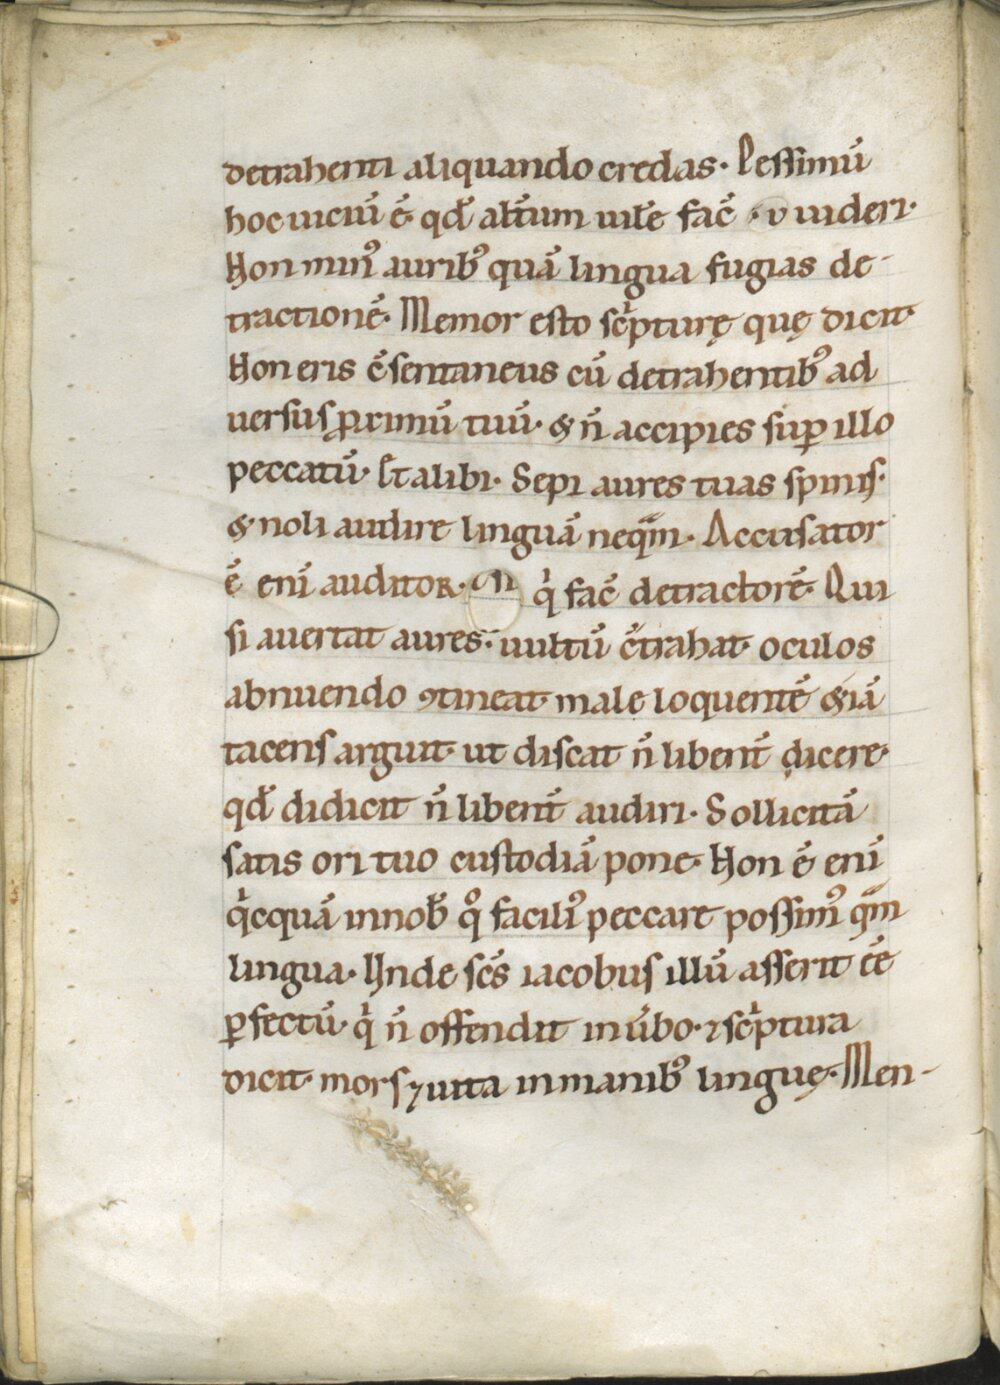 detrahenti aliquando credas· Pessimū
hoc uiciū ē· qđ alt̄um uilē fac̄ · v uideri·
Non min᾽ aurib᾽ quā lingua fugias de-
tractionē· Memor esto sc̀pturę quę dicit·
Non eris c̄sentaneus cū detrahentib᾽ ad
uersus ꝓximū tuū· & n̄ accipies suꝑ illo
peccatū· Et alibi· Sepi aures tuas spinis·
& noli audire linguā neq̄m· Accusator
ē enī auditor· q̀ fac̄ detractorē· Qui
si auertat aures· uultū c̄trahat· oculos
abnuendo ꝯtineat· male loquentē &iā
tacens arguit· ut discat n̄ libent̄ dicere·
qđ didicit n̄ libent̄ audiri· Sollicitā
satis ori tuo custodiā pone· Non ē enī
q̀cquā in nob̄ qͦ facili᾽ peccare possim᾽ q̄m
lingua· Unde sc̄s iacobus illū asserit ēē
ꝑfectū· q̀ n̄ offendit in ūbo· ⁊ sc̀ptura
dicit· mors ⁊ uita in manib᾽ linguę· Men-